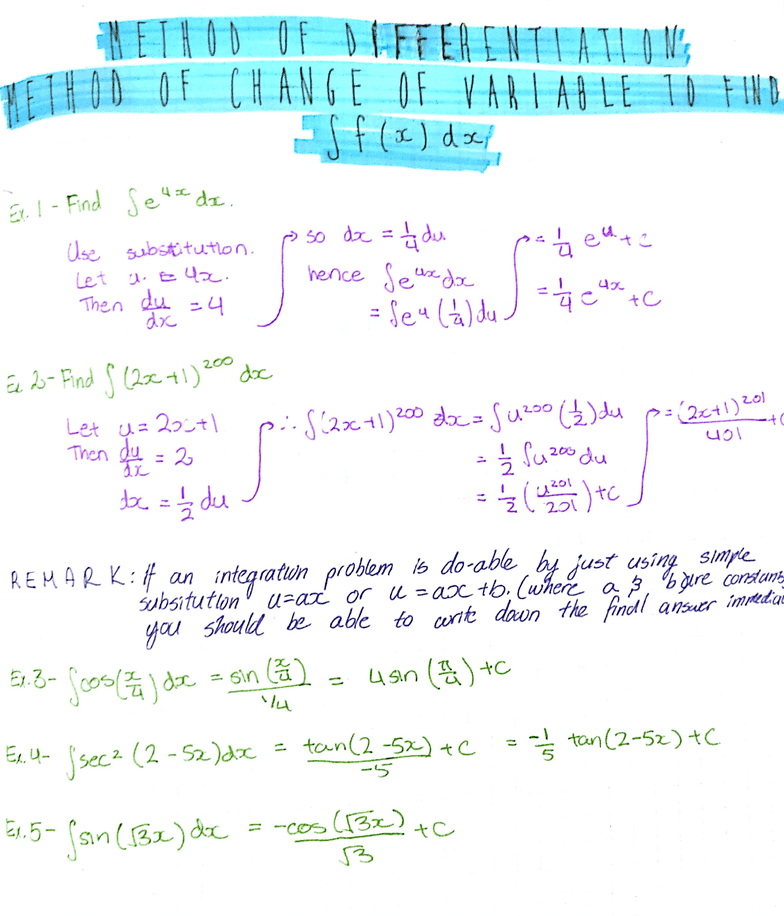 METHOD OF DIFFERENTIATION
METHOD OF CHANGE OF VARIABLE TO FIND
∫ f(x) dx
Ex. 1 - Find ∫e^4x dx.
Use substitution.
Let u = 4x.
Then du/dx = 4
so dx = 1/4 du.
hence ∫e^4x dx
= ∫e^u (1/4) du
= 1/4 e^u + c
= 1/4 e^4x + C
Ex 2 - Find ∫(2x+1)^200 dx
Let u = 2x+1
Then du/dx = 2
dx = 1/2 du
∴ ∫(2x+1)^200 dx = ∫u^200 (1/2) du
= 1/2 ∫u^200 du
= 1/2 (u^201/201) + C
= (2x+1)^201/401 + C
REMARK: If an integration problem is do-able by just using simple
subsitution u=ax or u=ax+b. (where a & b are constants
you should be able to write down the final answer immedia
Ex. 3 - ∫cos(x/4) dx = sin(x/4)/1/4 = 4 sin(π/4) + C
Ex. 4 - ∫sec² (2-5x) dx = tan(2-5x)/-5 + C = -1/5 tan(2-5x) + C
Ex. 5 - ∫sin(√3x) dx = -cos(√3x)/√3 + C